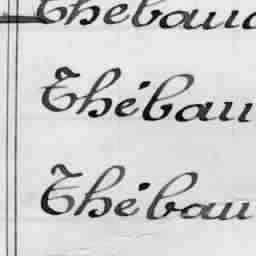 Thébaud
Thébau
Thébau